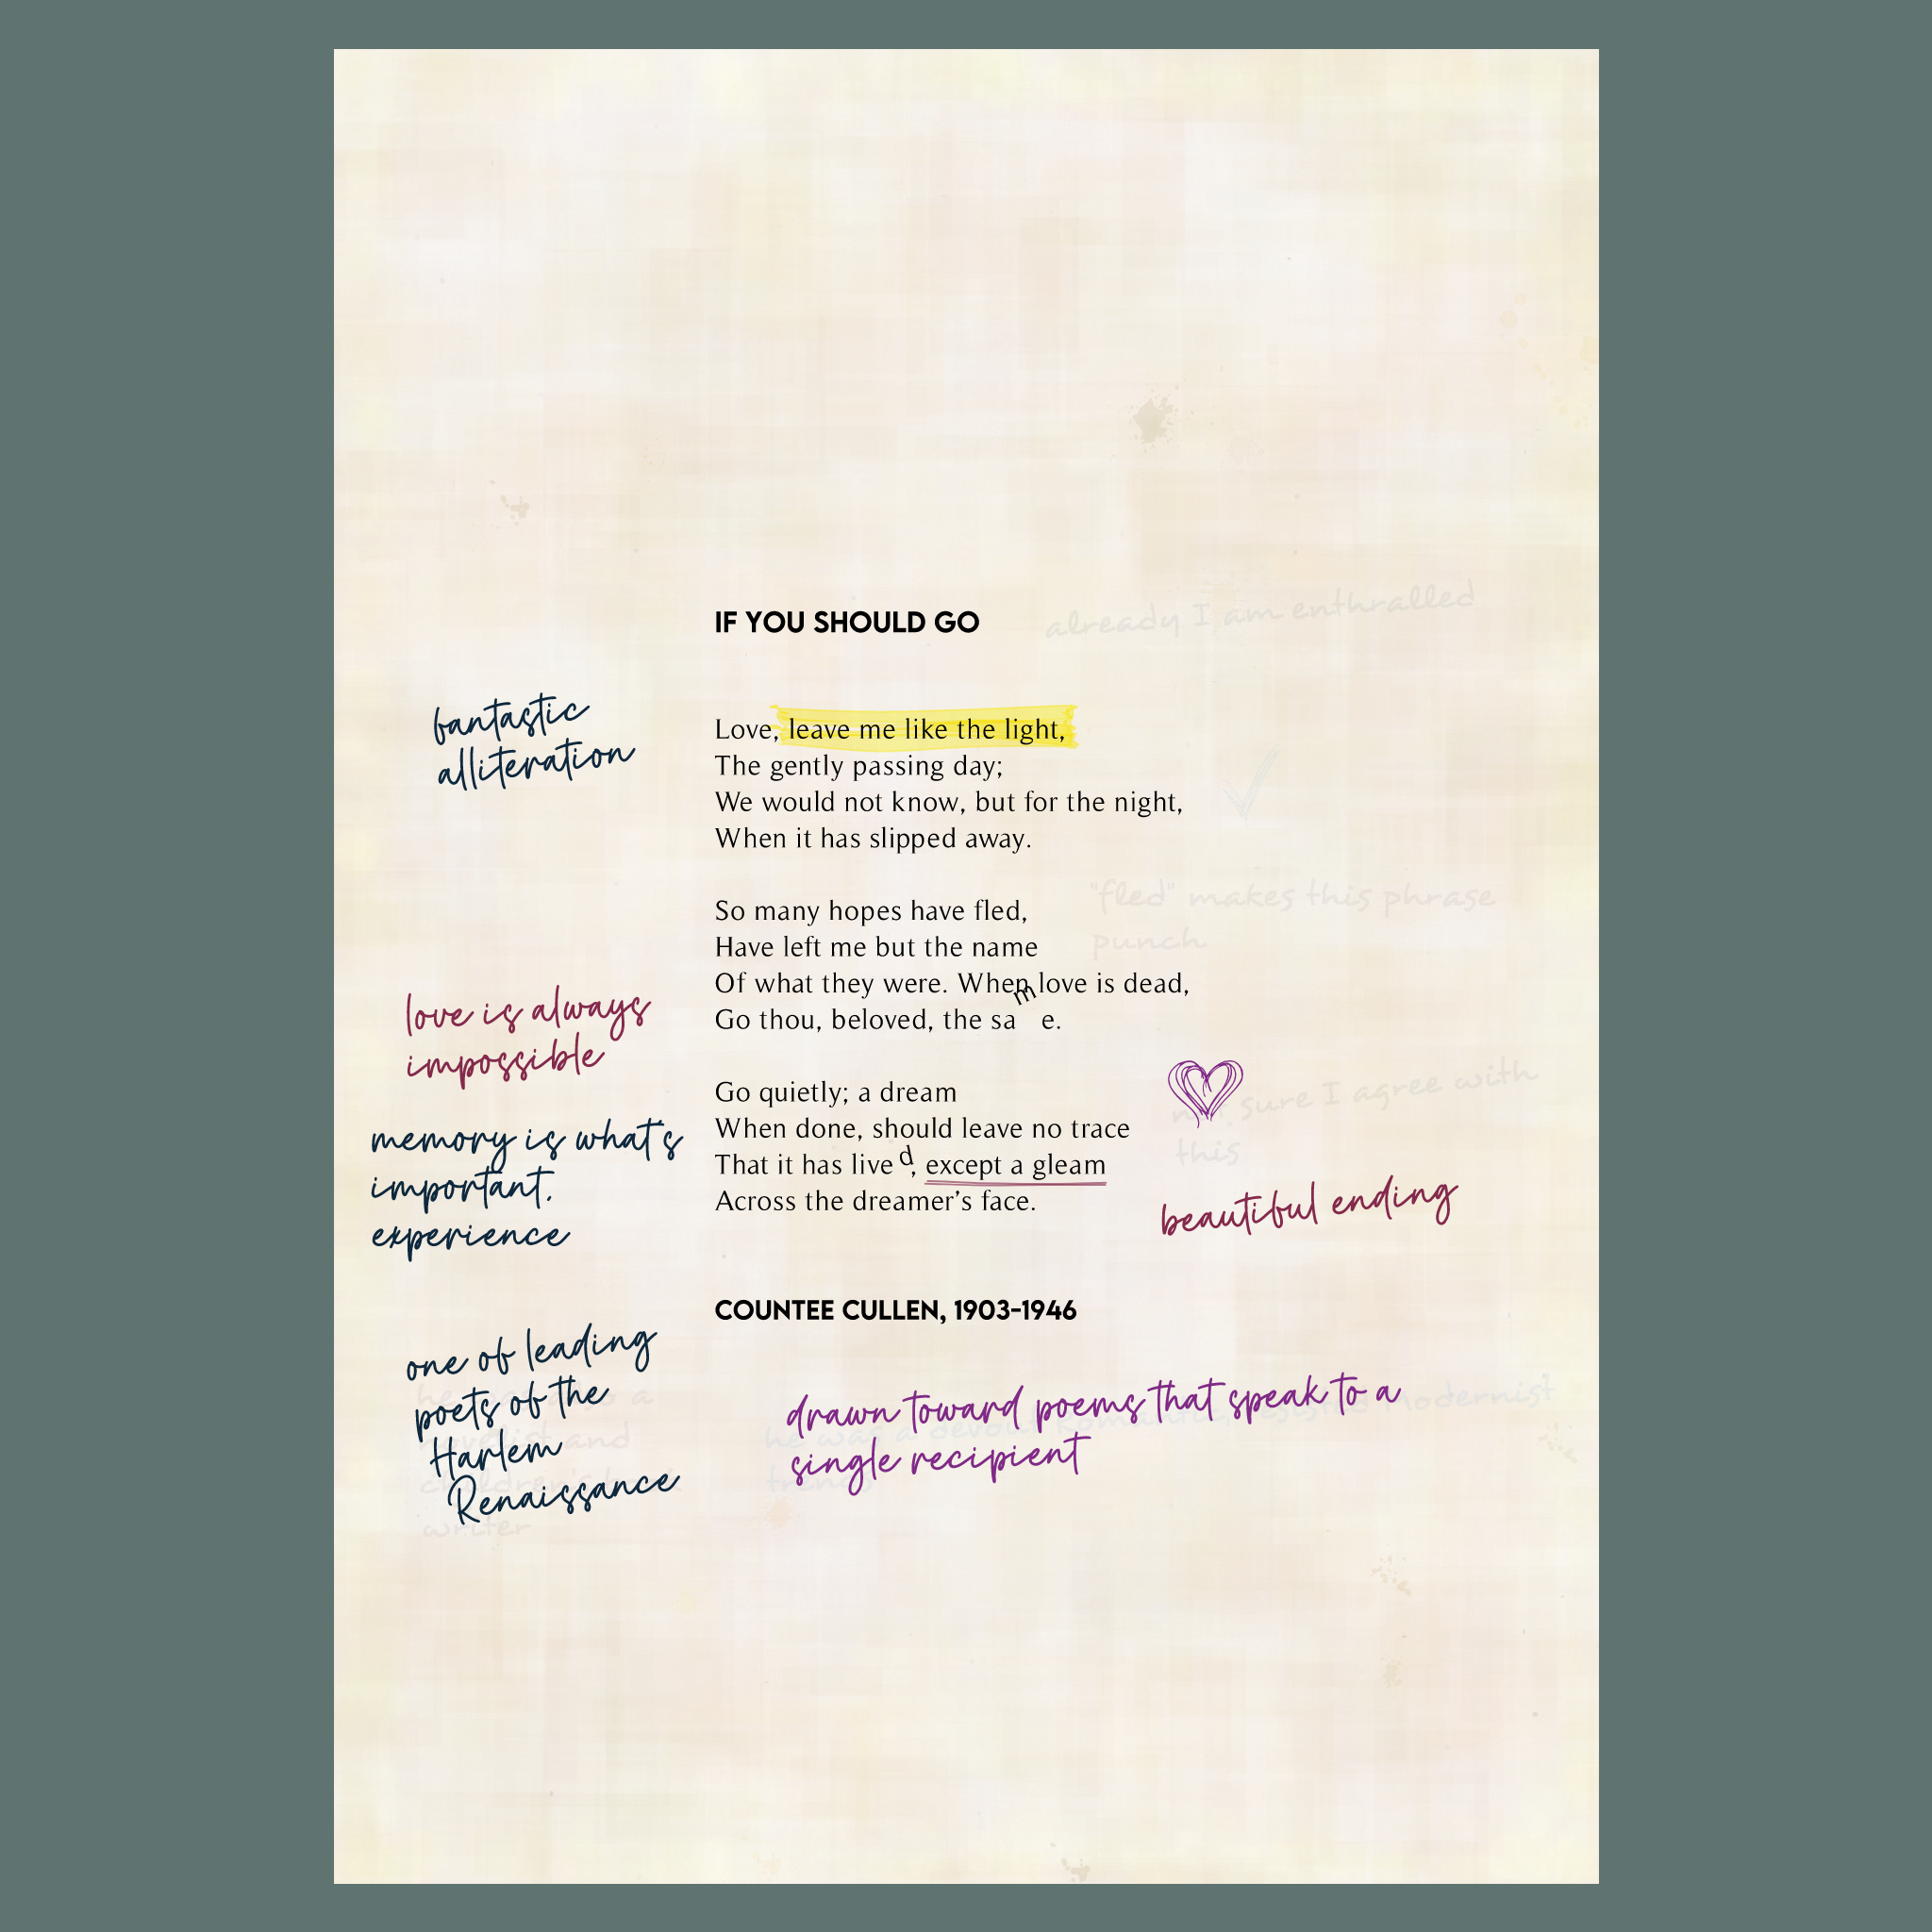 IF YOU SHOULD GO
already I am enthralled
fantastic
alliteration
Love, leave me like the light,
The gently passing day;
We would not know, but for the night,
When it has slipped away.
So many hopes have fled,
Have left me but the name
Of what they were. When love is dead,
Go thou, beloved, the same.
"fled" makes this phrase
punch
love is always
impossible
Go quietly; a dream
When done, should leave no trace
That it has lived, except a gleam
Across the dreamer's face.
not sure I agree with
this
memory is what's
important.
experience
beautiful ending
COUNTEE CULLEN, 1903-1946
one of leading
poets of the
Harlem
Renaissance
he a
novelist and
children's
writer
drawn toward poems that speak to a
single recipient
he was a devout Romantic, Modernist
trends